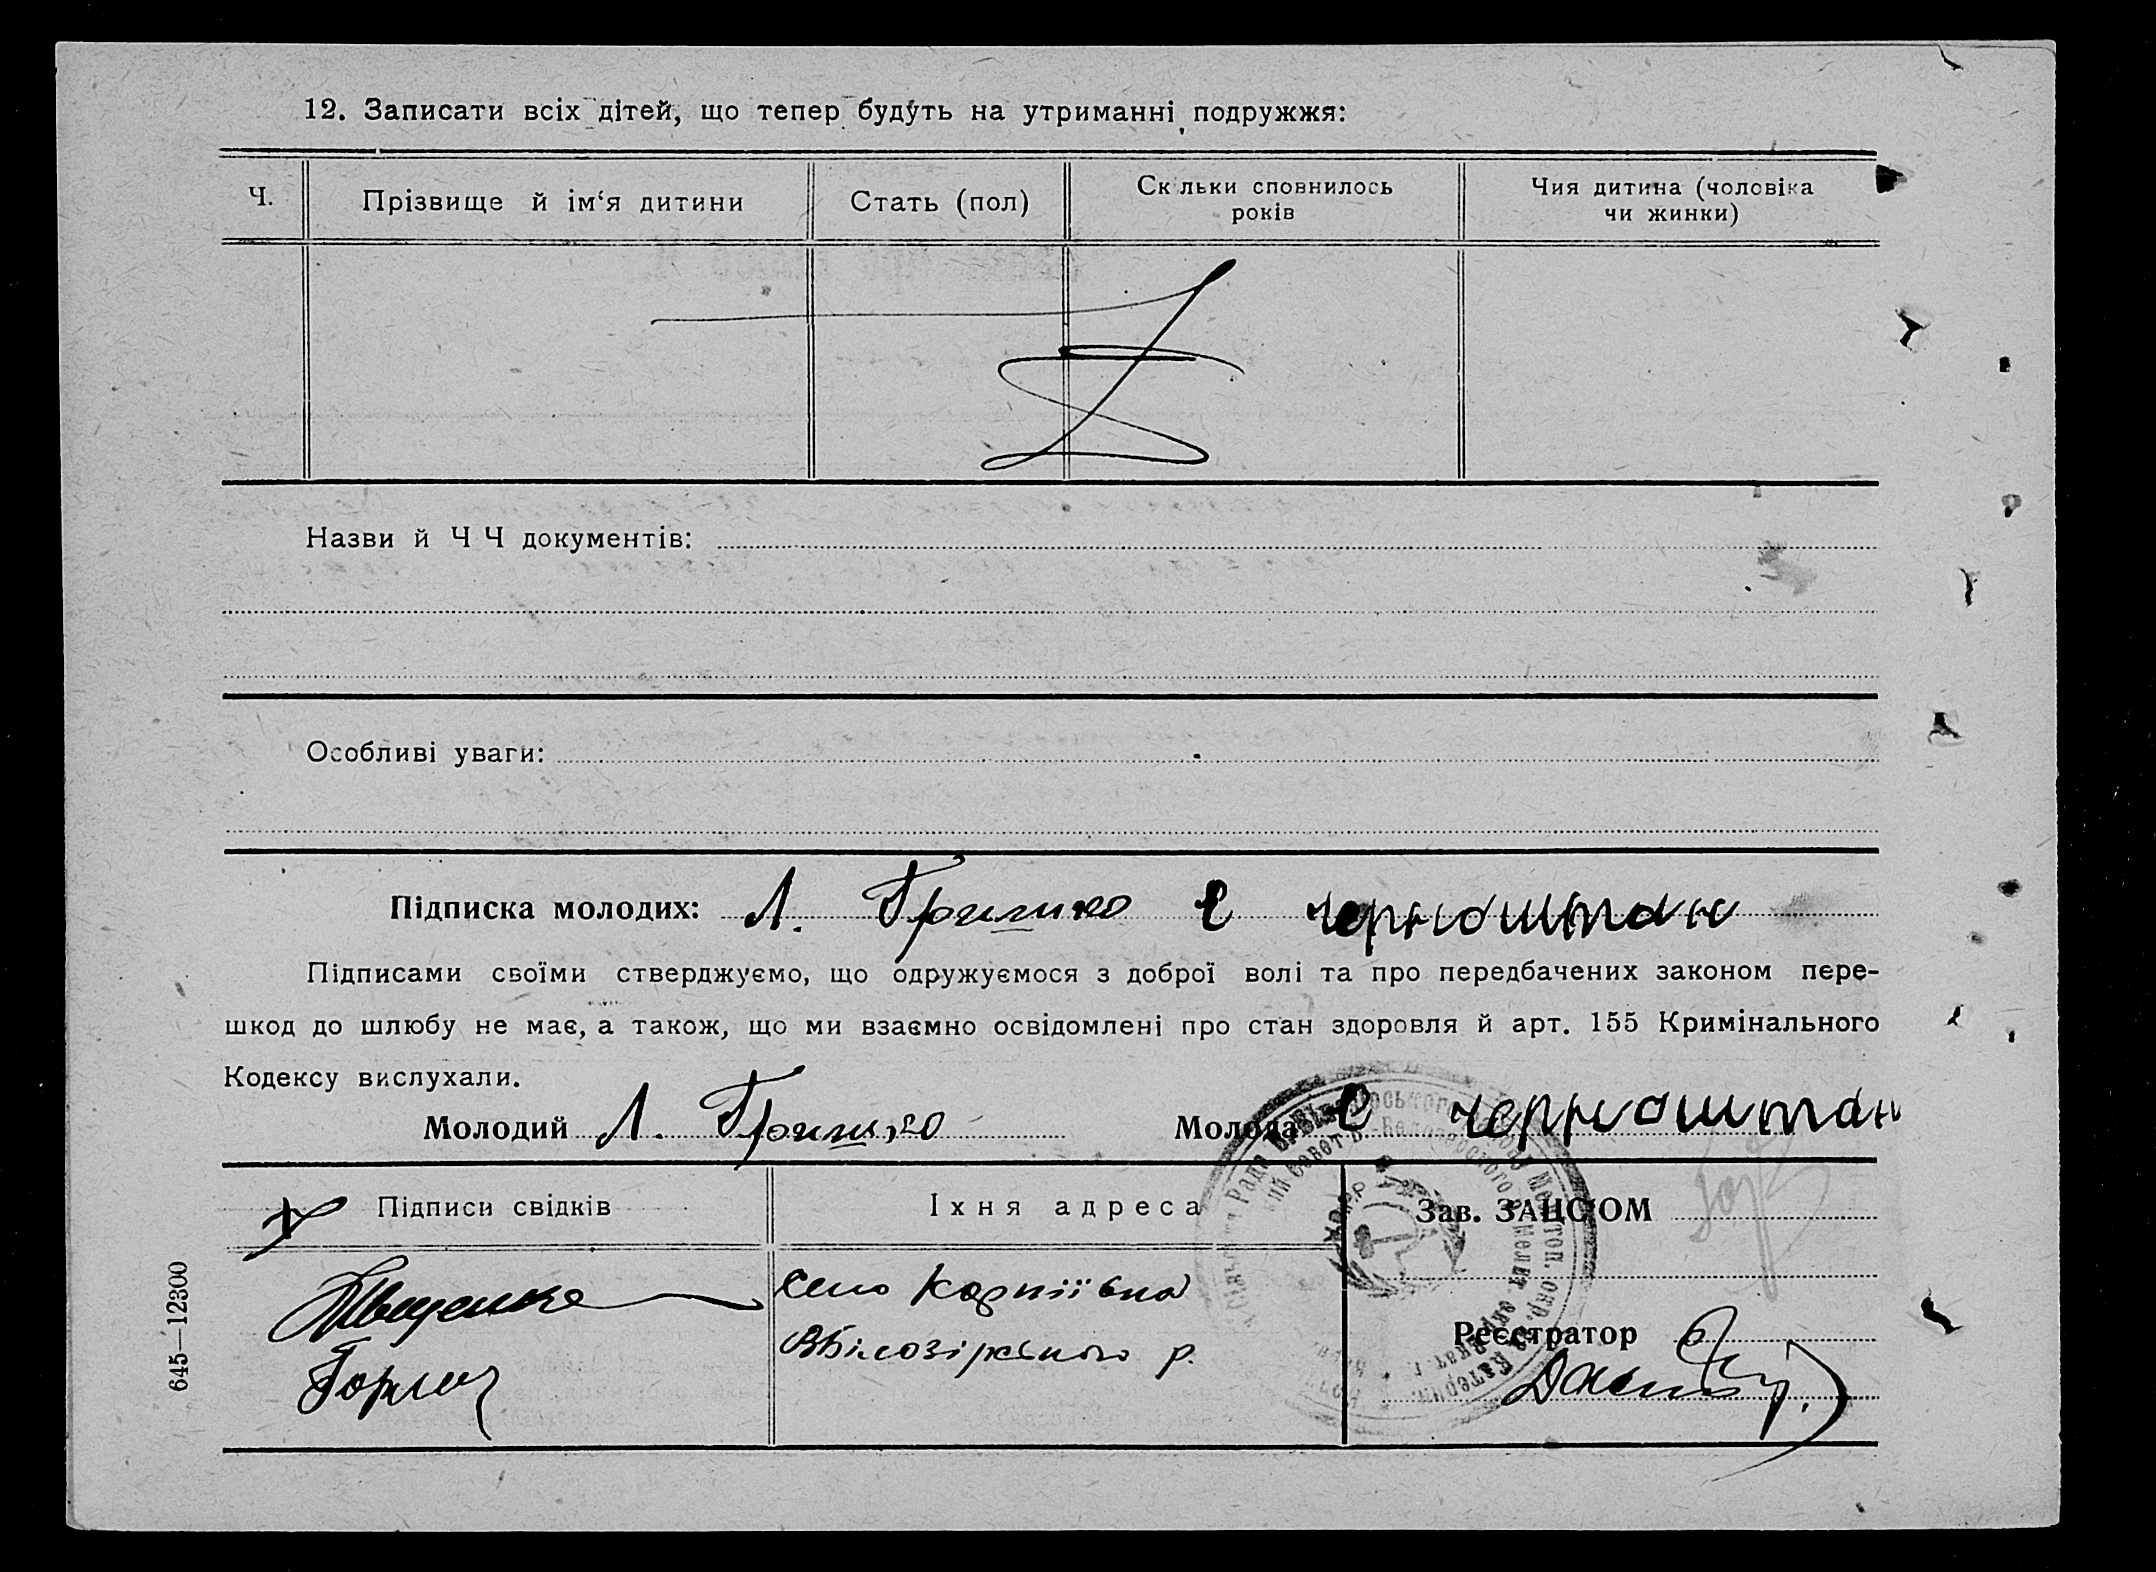 12. Записати всіх дітей, що тепер будуть на утриманні подружжя:
Ч.
Прізвище й ім‘я дитини
Стать (пол)
Скільки сповнилось
років
Чия дитина (чоловіка
чи жинки)
Назви й Ч Ч документів:
Особливі уваги:
Підписка молодих: Л. Гришко Є Черноштан
Підписами своїми стверджуємо, що одружуємося з доброї волі та про передбачених законом пере-
шкод до шлюбу не має, а також, що ми взаємно освідомлені про стан здоровля й арт. 155 Кримінального
Кодексу вислухали.
Молодий Л. Гришко Молода Є Черноштан
Підписи свідків
Їхня адреса
Зав. ЗАЦСОМ
село Карпіївка
ВБілозірського р.
Реєстратор
645—12300